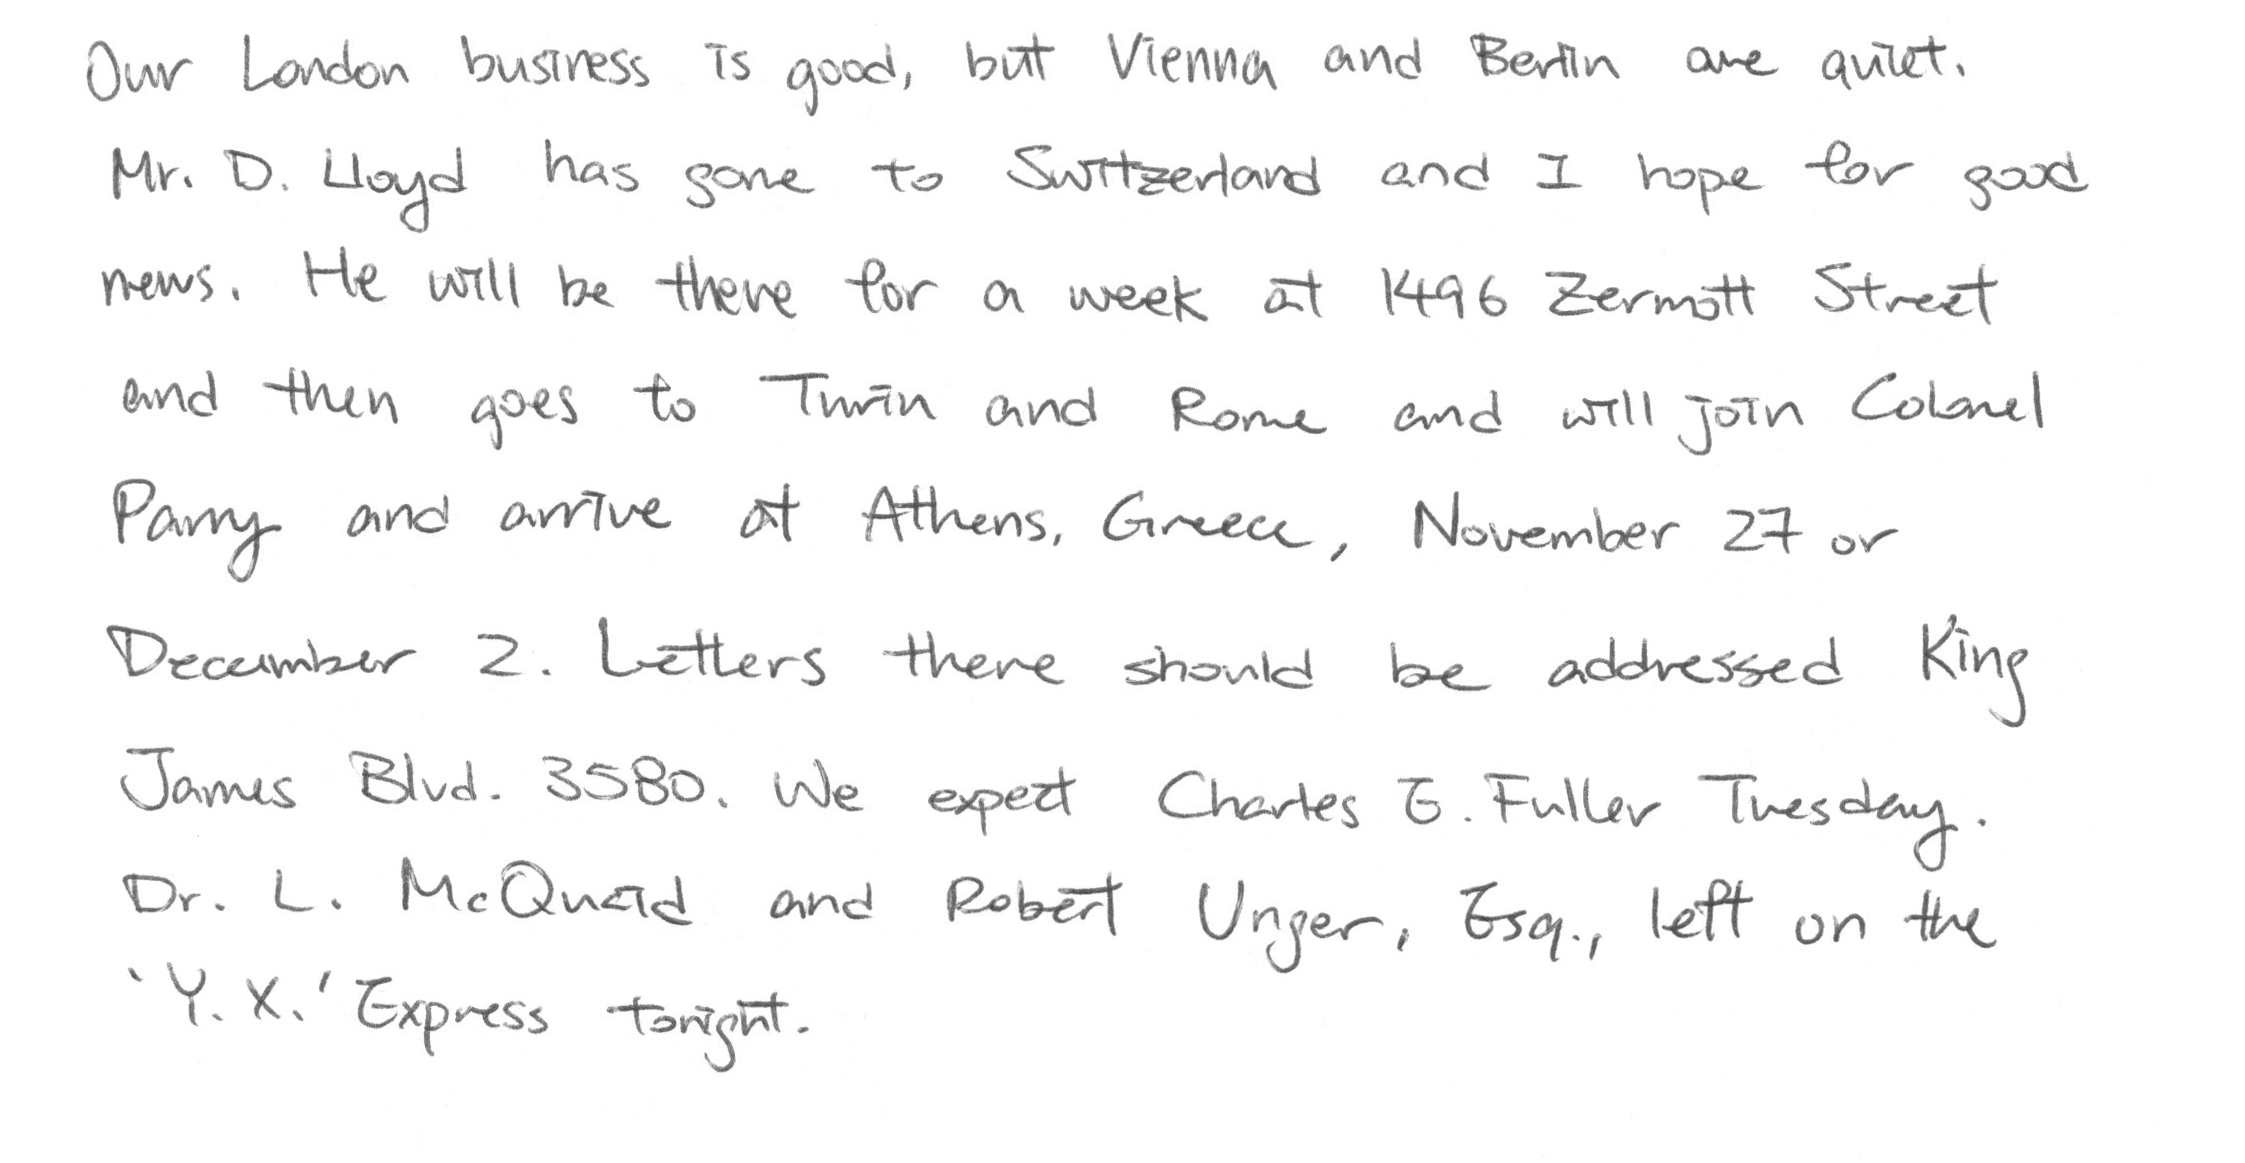 Our London business is good, but Vienna and Berlin are quiet.
Mr. D. Lloyd has gone to Switzerland and I hope for good
news. He will be there for a week at 1496 Zermott Street
and then goes to Turin and Rome and will join Colonel
Parry and arrive at Athens, Greece, November 27 or
December 2. Letters there should be addressed King
James Blvd. 3580. We expect Charles E. Fuller Tuesday.
Dr. L. McQuaid and Robert Unger, Esq., left on the
'Y. X.' Express tonight.